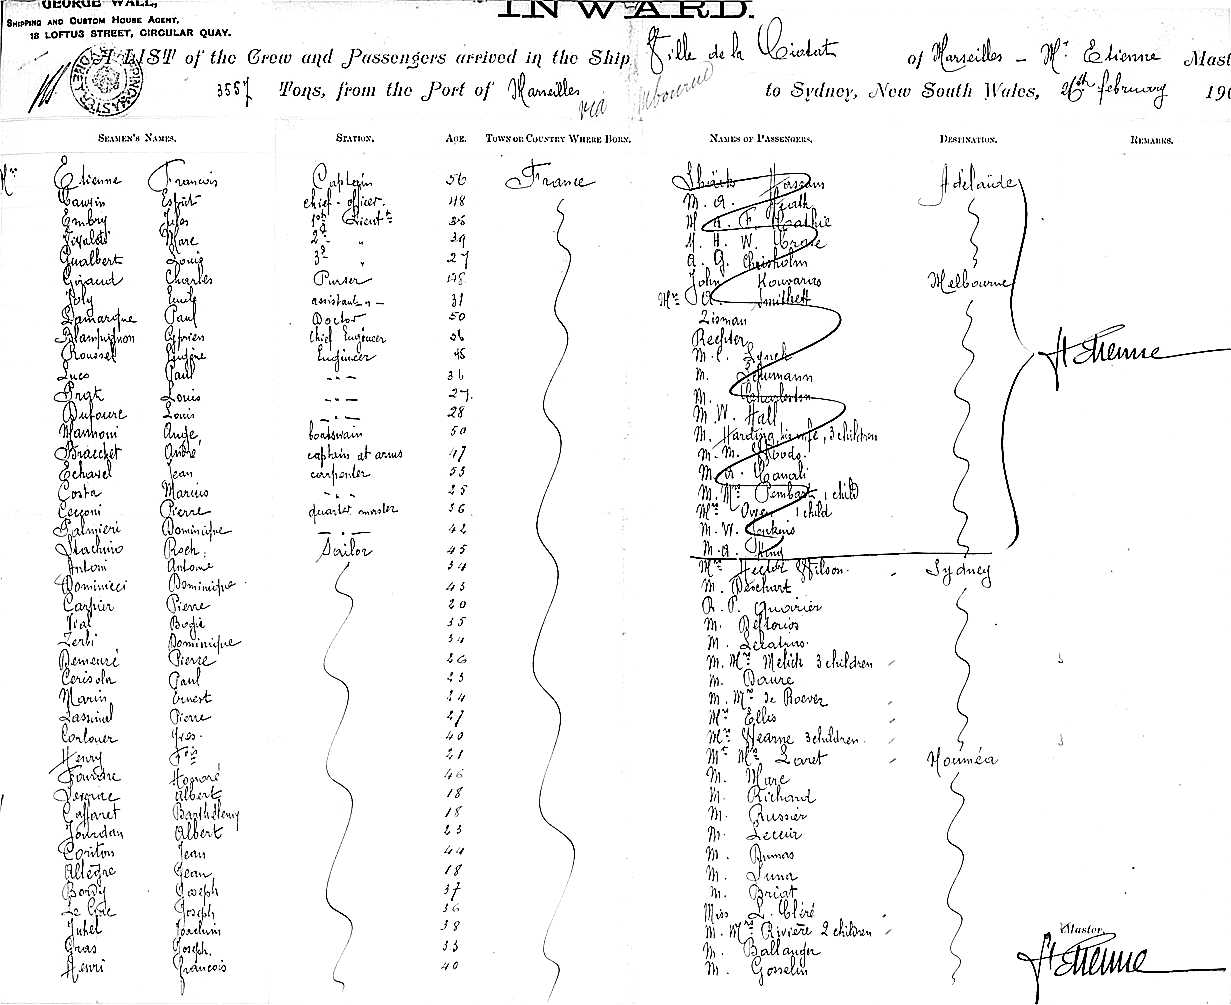 GEORGE WALL,
SHIPPING AND CUSTOM HOUSE AGENT,
18 LOFTUS STREET, CIRCULAR QUAY.
INWARD.
A LIST of the Crew and Passengers arrived in the Ship Ville de la Ciotat of Marseilles - Mr Etienne Mast
3557 Tons, from the Port of Marseilles via Melbourne to Sydney, New South Wales, 26th february 190
SEAMEN'S NAMES. STATION. AGE. TOWN OR COUNTRY WHERE BORN. NAMES OF PASSENGERS. DESTINATION. REMARKS.
Mr Etienne Francois Captain 56 France Hassans Adelaide
Cauvin Esprit chief-officer. 48 M. A. Heath
Embry Jules 1st Lieutt M. A. F.
Vivaldi Marc 2d " 39 M. H. W. Crose
Gualbert Louis 3d " 27 A. G. Chisholm
Giraud Charles Purser John Kouvaras Melbourne
Joly Emile assistant 31 Mrs Smithett
Lamarque Paul Doctor 50 Zisman
Blampignon Cyprien Chief Engineer 56 Rechter
Roussel Eugène Engineer 45 M. C. Lynch
Luco Paul --- 36 M. Schumann
Prat Louis --- 27. M. Charleston
Dufoure Louis --- 28 M. W. Hall
Mannoni Ange, boatswain 50 M. Harding, his wife, 3 children
Bracchet André captain at arms 47 M. M. Woods
Echavel Jean carpenter 53 M. A. Canali
Costa Marius --- 25 M. Mrs Pembart 1 child
Cecconi Pierre quarter master 36 Mrs Owen 1 child
Palmieri Dominique --- 42 M. W. Jenkins
Stachino Roch. Sailor 45 M. A. King
Antoni Antoine 34 Mrs Hector Wilson. Sydney
Dominici Dominique 43 M. Deschart
Carpier Pierre 20 R. P.
Vial Bogie 35 M. Deflorios
Zerbi Dominique 34 M.
Demeuré Pierre 26 M. Mrs Melick 3 children
Cerisola Paul 23 M. Daure
Marin Ernest 24 M. Mrs de Roever
Lassinel Pierre 27 Mrs Ellis
Corlouer Yves. 40 Mrs Hearne 3 children.
Henry Fis 21 Mr Mrs Loret Nouméa
Foudre Honoré 46 M. Mare
Albert 18 M. Richard
Caffaret Barthélemy 18 M. Russier
Jourdan Albert 23 M. Lecuir
Coriton Jean 44 M. Dumas
Allègre Jean 18 M. Luna
Bordy Joseph 37 M. Briat
Le Cire Joseph 36 Miss L. Cléré
Juhel Joachim 38 M. Mrs Riviere 2 children Master,
Gras Joseph. 33 M. Ballanger
Henri Francois 40 M. Gosselin
H Etienne
H Etienne